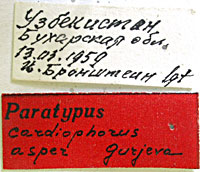 Узбекистан
Бухарская обл.
13.03.1959
Бронштейн
Paratypus
cardiophorus
asper gurjeva